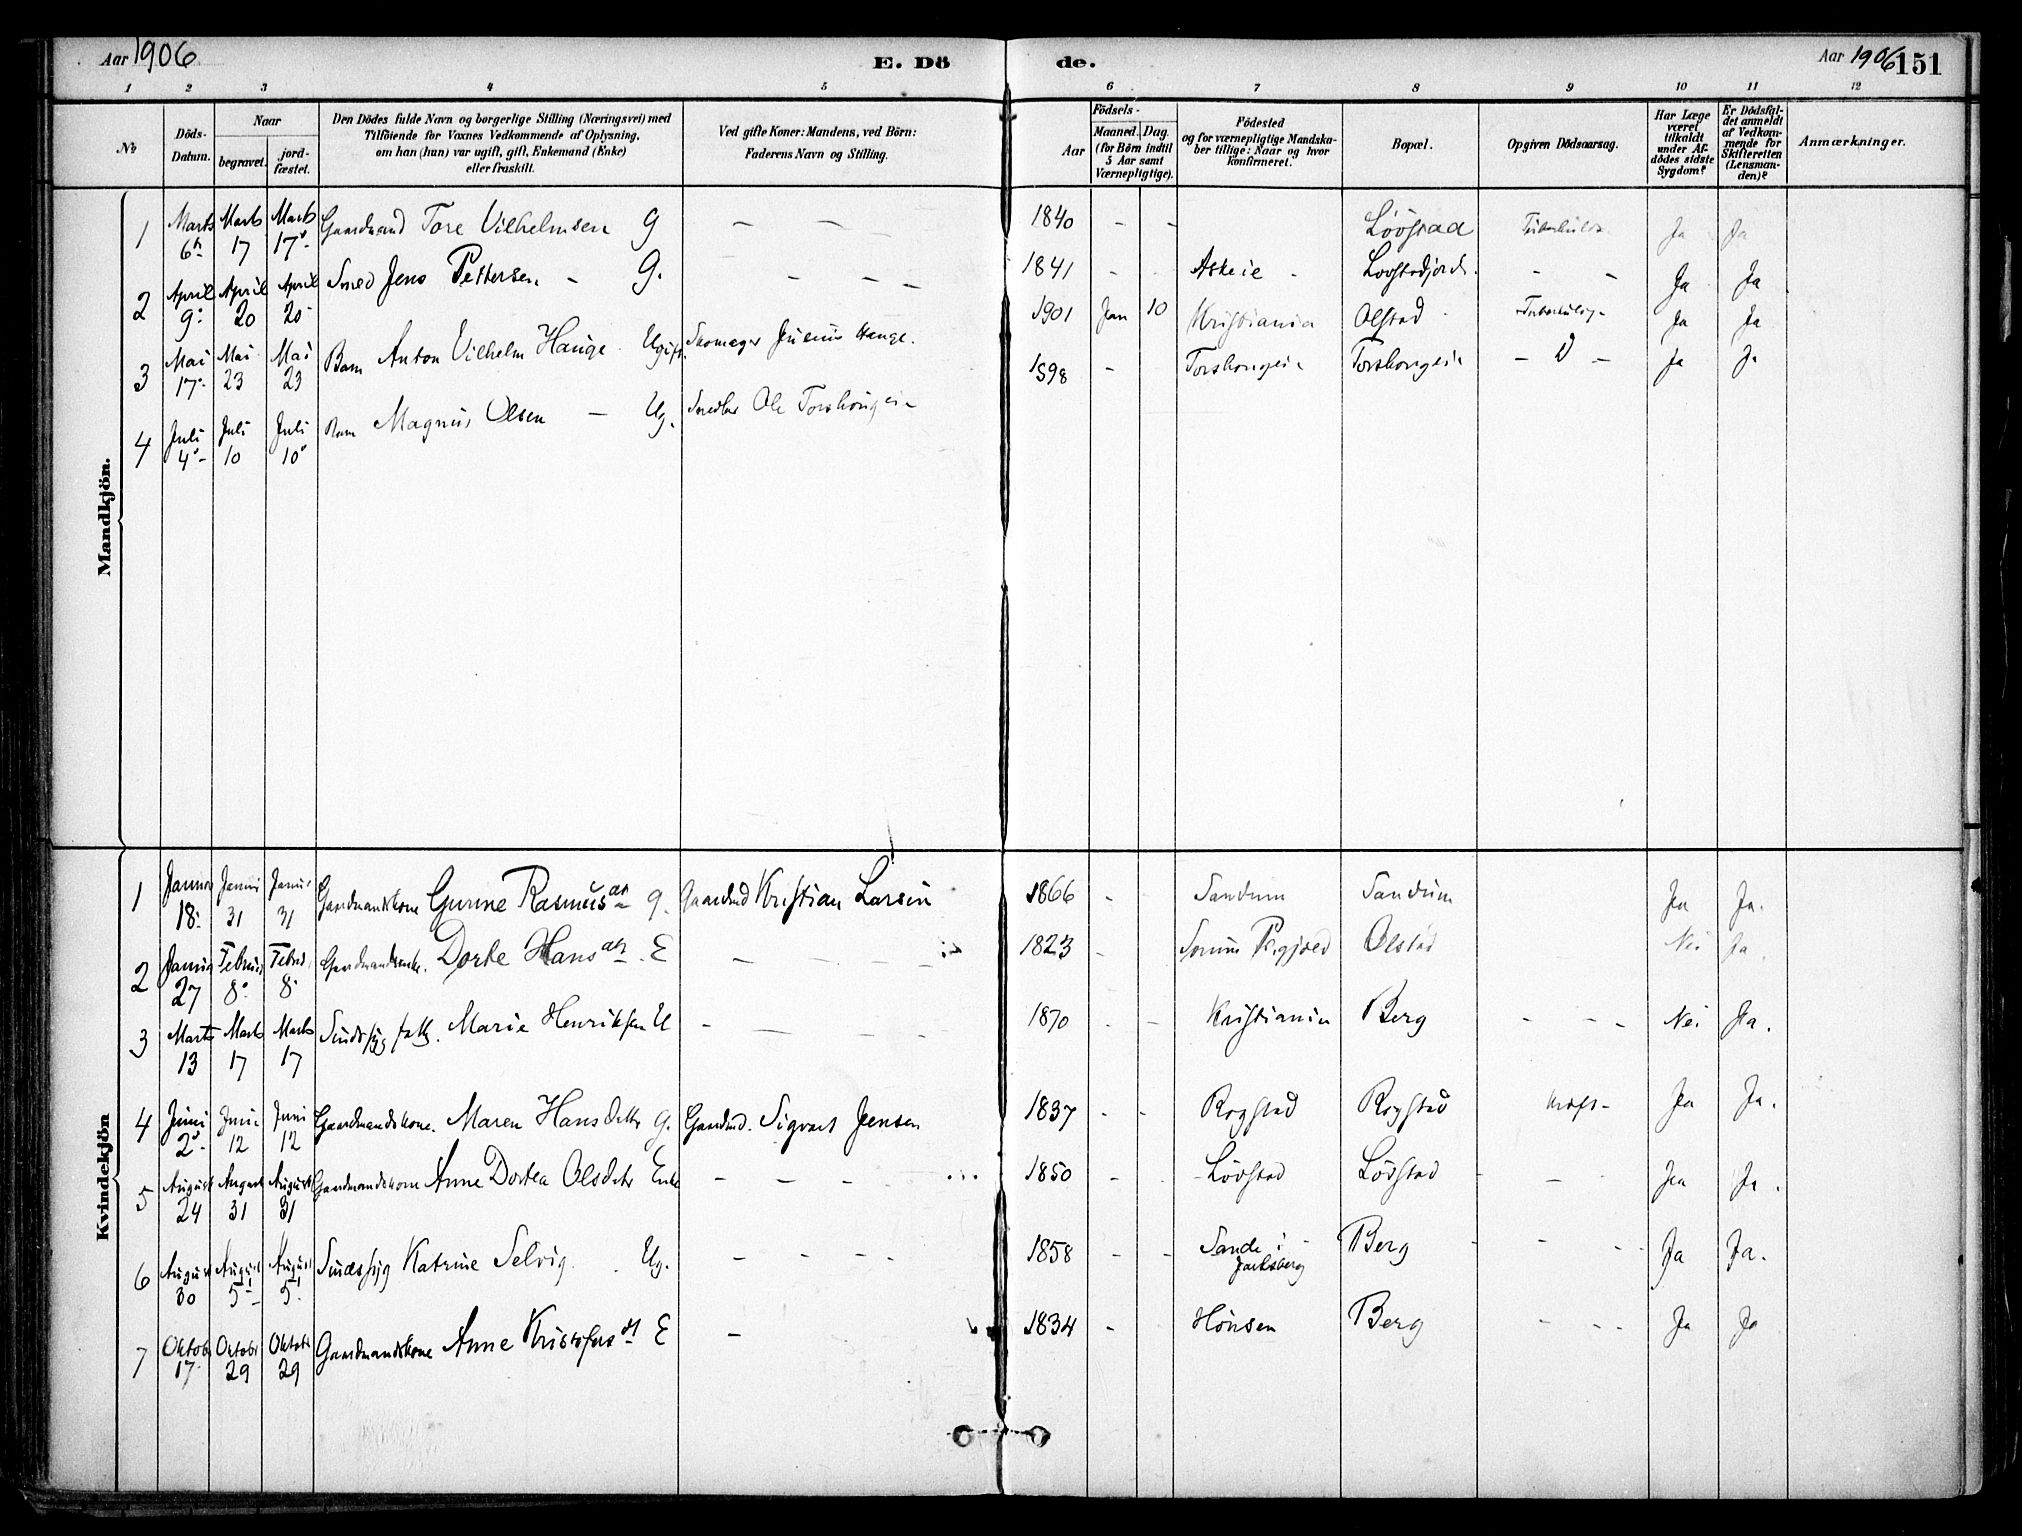 Aar 1906
E. Dö de.
Aar 1906 151
1 2 3 4 5 6 7 8 9 10 11 12
№
Döds-Datum.
Naar
begravet. jordfæstet.
Den Dödes fulde Navn og borgerlige Stilling (Næringsvei) med
Tilföiende for Voxnes Vedkommende af Oplysning,
om han (hun) var ugift, gift, Enkemand (Enke)
eller fraskilt.
Ved gifte Koner: Mandens, ved Börn:
Faderens Navn og Stilling.
Födsels-
Aar
Maaned. Dag.
(for Börn indtil
5 Aar samt
Værnepligtige).
Födested
og for værnepligtige Mandska-
ber tillige: Naar og hvor
konfirmeret.
Bopæl.
Opgiven Dödsaarsag.
Har Læge
været
tilkaldt
under Af-
dödes sidste
Sygdom?
Er Dödsfal-
det anmeldt
af Vedkom-
mende for
Skifteretten
(Lensman-
den)?
Anmærkninger.
Mandkjön.
1 Marts 6 Marts 17 Marts 17 Gaardmand Tore Vilhelmsen G — — 1840 - - Lövstad Ja Ja
2 April 9 April 20 April 20 Smed Jens Pettersen - G. - - - - 1841 - Askeie - - - Ja Ja
3 Mai 17 Mai 23 Mai 23 Barn Anton Vilhelm Hauge Ugift. Skomager Hauge. 1901 Jan 10 Kristiania Olstad Ja Ja
4 Juli 4 Juli 10 Juli 10 Barn Magnus Olsen — Ug. Ole 1898 - - D - Ja Ja
Kvindekjön
1 Januar 18 Januar 31 Januar 31 Gaardmandskone Gurine Rasmusdn G. Gaardmd Kristian Larsen 1866 - Sandum Sandum Ja Ja.
2 Januar 27 Februar 8 Februar 8 Gaardmandsenke. Dorte Hansdtr. E - - - - 1823 - Olstad Nei Ja.
3 Marts 13 Marts 17 Marts 17 Sindssyg Marie Henriksen U - - - - 1870 - - Kristiania Berg - - - Nei Ja.
4 Juni 2 Juni 12 Juni 12 Gaardmandskone. Maren Hansdatter G. Gaardmd. Sigvart Jensen 1837 - - Rogstad Rogstad Kræft - Ja Ja.
5 August 24 August 31 August 31 Gaardmandskone Anne Dortea Olsdatr Enke - - - - 1850 - - Lövstad Lövstad - - Ja Ja.
6 August 30 August 5 August 5 Sindssyg Katrine Selvig Ug. - - - - 1858 - - Sande i Jarlsberg Berg - - - Ja Ja.
7 Oktob 17 Oktobr 29 Oktobr 29 Gaardmandskone Anne Kristofersdt E - 1834 - Hönsen Berg - - - Ja Ja